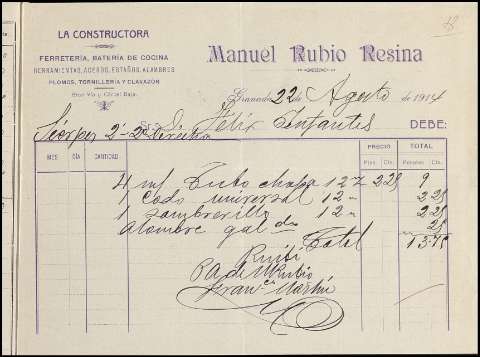 LA CONSTRUCTORA
FERRETERÍA, BATERÍA DE COCINA
HERRAMIENTAS, ACEROS, ESTAÑOS, ALAMBRES
PLOMOS, TORNILLERÍA Y CLAVAZÓN
Gran Vía y Cárcel Baja.
Manuel Rubio Resina
Granada 22 de Agosto de 1914
Sr. D. Félix Infantes DEBE:
MES DÍA CANTIDAD PRECIO TOTAL
Ptas. Cts. Pesetas Cts.
4 m/ Tubo chapa 12 2 25 9
1 Codo universal 12 2 25
1 Sombrerillo 12 2 25
Alambre galdo 25
Total 13.75
Recibí
PA de M Rubio
Franco Martín